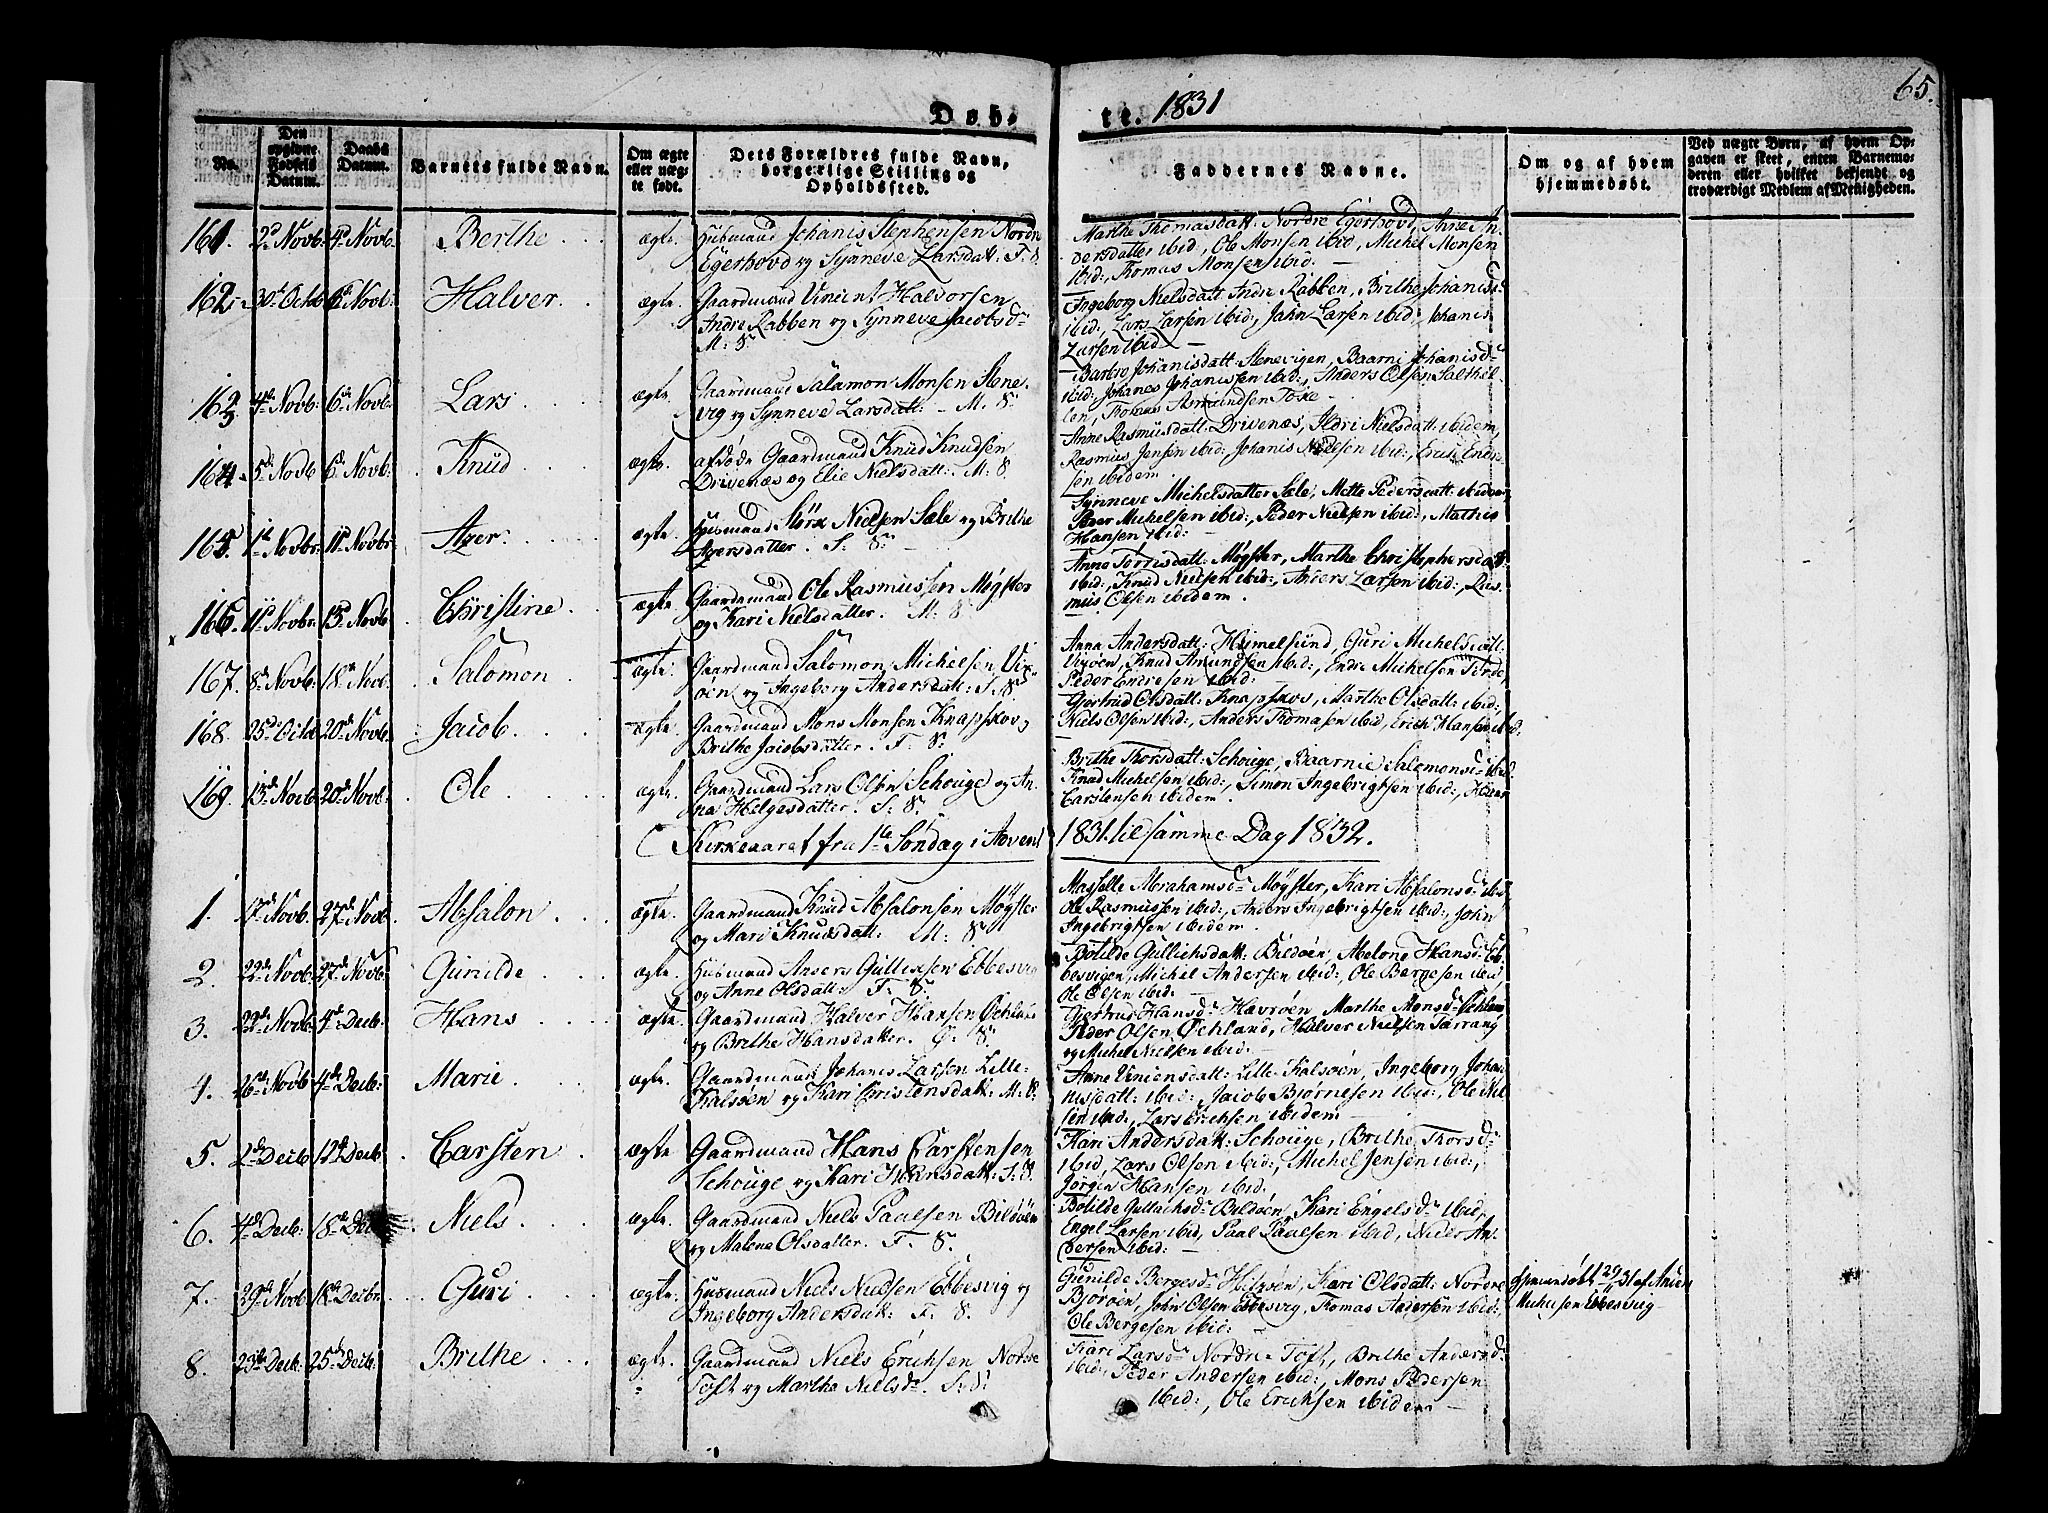 65.
Døb, te. 1831
No.
Den opgivne Fødsels Datum.
Daabs Datum.
Barnets fulde Navn.
Om ægte eller uægte født.
Dets Forældres fulde Navn, borgerlige Stilling og Opholdssted.
Faddernes Navne.
Om og af hvem hjemmedøbt.
Ved uægte Børn, af hvem Opgaven er skeet, enten Barnemoderen eller hvilket bekjendt og troværdigt Medlem af Menigheden.
161. 2d Novb. 4d Novb. Berthe ægte. Husmand Johanis Stephensen Nordre
Egerhovd og Synneve Larsdatt: F. S.
Marthe Thomasdatt: Nordre Egerhovd, Anne An-
dersdatter ibid:, Ole Monsen ibid, Michel Monsen
ibid:, Thomas Monsen ibid:
162. 30d Octb 6d Novb: Halver ægte. Gaardmand Vincent Haldorsen
Andre Rabben og Synneve Jacobsd.
M: S.
Ingeborg Nielsdatt: Andre Rabben, Brithe Johanisd.
ibid:, Lars Larsen ibid:, Jahn Larsen ibid:, Johanis
Larsen ibid
163 4d Novb: 6d Novb: Lars ægte. Gaardmand Salamon Monsen Stene-
vig og Synneve Larsdatt: M. S.
Barbro Johanisdatt: Stenevigen, Baarni Johanisd.
ibid:, Johanes Johanissen ibid:, Anders Olsen Salthel-
len, Thomas Asmundsen Toske
164. 5d Novb 6d Novb: Knud ægte. afdøde Gaardmand Knud Knudsen
Drivenæs og Elie Nielsdatt: M: S.
Anne Rasmusdatt: Drivenæs, Ildri Nielsdatt: ibidem,
Rasmus Jensen ibid: Johanis Nielsen ibid:, Erich Endre-
sen ibidem
165. 1d Novbr. 11d Novbr. Azer ægte. Husmand Størk Nielsen Sæle og Brithe
Azersdatter. S: S.
Synneve Michelsdatter Sæle, Mette Pedersdatt: ibidem
Peder Michelsen ibid:, Peder Nielsen ibid:, Mathis
Hansen ibid:
166. 11d Novbr. 13d Novb. Christine ægte. Gaardmand Ole Rasmussen Møgster
og Kari Nielsdatter. M: S.
Anna Torrisdatt: Møgster, Marthe Christophersdatt.
ibid:, Knud Nielsen ibid:, Anders Larsen ibid:, Ras-
mus Olsen ibidem.
167. 8d Novb: 18d Novb. Salomon ægte. Gaardmand Salomon Michelsen Vix-
øen og Ingeborg Andersdatt: S. S.
Anna Andersdatt: Himelsund, Guri Michelsdatt:
Vixøen, Knud Amundsen ibid:, Endre Michelsen
Peder Endresen ibid:
168. 25d Octb 20d Novb. Jacob ægte. Gaardmand Mons Monsen Knapskov og
Brithe Jacobsdatter. F: S.
Giertrud Olsdatt: Knapskov, Marthe Olsdatt: ibid:
Niels Olsen ibid:, Anders Thomasen ibid, Erich Hansen ibid.
169. 13d Novb 20d Novb. Ole ægte. Gaardmand Lars Olsen Schouge og An-
na Helgesdatter. S: S.
Brithe Thorsdatt: Schouge, Baarnie Salemonsd. ibid.
Knud Michelsen ibid:, Simon Ingebrigtsen ibid:,
Carstensen ibidem.
Kirkeaaret fra 1te Søndag i Advent 1831 til samme Dag 1832.
1. 17d Novb. 27d Novb. Absalon ægte. Gaardmand Knud Absalonsen Møgster
og Mari Knudsdatt: M: S.
Maghelte Abrahamsd. Møgster, Kari Absalonsd. ibid
Ole Rasmussen ibid:, Anders Ingebrigtsen ibid:, John
Ingebrigtsen ibidem.
2. 22d Novb. 27d Novb. Gunilde ægte. Husmand Anders Gullixsen Ebbesvig
og Anne Olsdatt: F: S.
Botilde Gullichsdatt: Bildøen, Abelone Hansd. Eb-
besvigen, Michel Andersen ibid:, Ole Bergesen ibid,
Ole Olsen ibid:
3. 22d Novb. 4d Decb. Hans ægte. Gaardmand Halver Hansen Øchland
og Brithe Hansdatter. S.
Giertrud Hansd. Havrøen, Marthe Monsd. Øchland
Peder Olsen Øchland, Halver Nielsen Tarrang
og Michel Nielsen ibid:
4. 26d Novb 4d Decb: Marie ægte. Gaardmand Johanis Larsen Lille-
Kalsøen og Kari Christensdatt: M: S.
Anne Viniensdatt: Lille Kalsøen, Ingeborg Joha-
nisdatt: ibid:, Jacob Bjørnesen ibid:, Ole Niel-
sen ibid:, Lars Erichsen ibidem
5. 2d Decb 12d Decb. Carsten ægte Gaardmand Hans Carstensen
Schouge og Kari Hansdatt: S. S.
Kari Andersdatt: Schouge, Brithe Thorsd.
ibid, Lars Olsen ibid:, Michel Jensen ibid:,
Jørgen Hansen ibid:
6. 4d Decb: 18d Decb Niels ægte. Gaardmand Niels Paalsen Bildøen
og Malene Olsdatter. F. S.
Botilde Gullachsd. Bildøen, Kari Engelsd. ibid,
Engel Larsen ibid, Paal Paalsen ibid, An-
dersen ibid:
7. 29d Novb 18d Decbr. Guri ægte. Husmand Niels Nielsen Ebbesvig og
Ingeborg Andersdatt: F. S.
Gunilde Bergesd. Kari Olsdatt: Nordre
Bjorøen, John Olsen Ebbesvig, Thomas Andersen ibid:,
Ole Bergesen ibid:
Hjemmedøbt af
Michelsen Ebbesvig
8. 23d Decb. 25d Decb. Brithe ægte. Gaardmand Niels Erichsen Nordre
Toft og Martha Nielsd. S: S.
Kari Larsd. Nordre-Toft, Brithe Andersd.
ibid:, Peder Andersen ibid:, Mons Pedersen
ibid:, Ole Erichsen ibidem